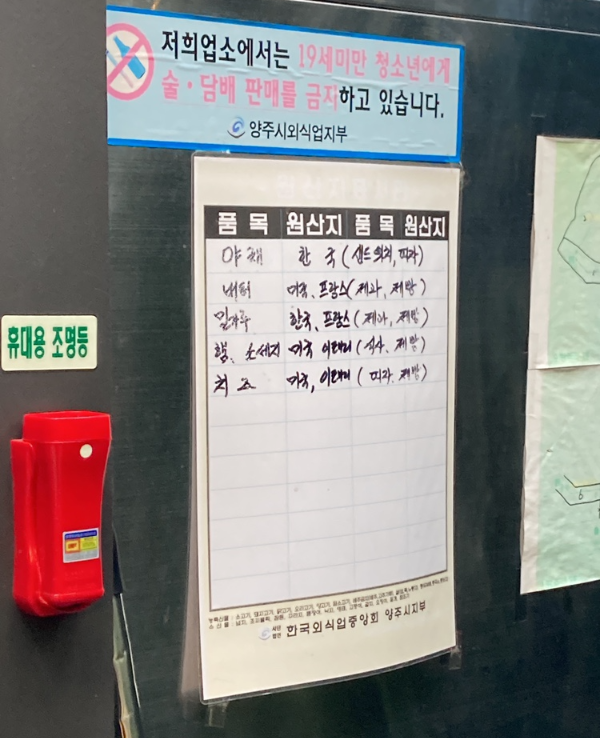 저희업소에서는 19세미만 청소년에게
술·담배 판매를 금지하고 있습니다.
양주시외식업지부
품 목 원산지 품 목 원산지
야채 한 국 (샌드위치, 피자)
버터 미국, 프랑스 (제과, 제빵)
밀가루 한국, 프랑스 (제과, 제빵)
햄, 소세지 미국 이태리 (식사, 제빵)
치 즈 미국, 이태리 (피자, 제빵)
사단법인 한국외식업중앙회 양주시지부
휴대용 조명등
6